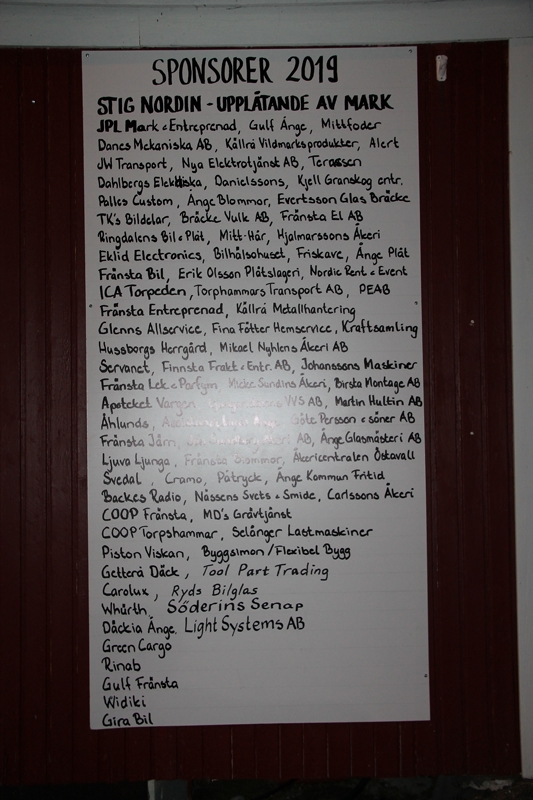 SPONSORER 2019
STIG NORDIN - UPPLÅTANDE AV MARK
JPL Mark & Entreprenad, Gulf Ånge, Mittfoder
Danes Mekaniska AB, Kållrå Vildmarksprodukter, Alert
JW Transport, Nya Elektrotjänst AB, Terassen
Dahlbergs Elektriska, Danielssons, Kjell Granskog entr.
Palles Custom, Ånge Blommor, Evertsson Glas Bräcke
TK's Bildelar, Bräcke Vulk AB, Frånsta El AB
Ringdalens Bil & Plåt, Mitt-Hår, Hjalmarssons Åkeri
Eklid Electronics, Bilhälsohuset, Friskave, Ånge Plåt
Frånsta Bil, Erik Olsson Plåtslageri, Nordic Rent & Event
ICA Torpeden, Torphammars Transport AB, PEAB
Frånsta Entreprenad, Kållrå Metallhantering
Glenns Allservice, Fina Fötter Hemservice, Kraftsamling
Hussborgs Herrgård, Mikael Nyhlens Åkeri AB
Servanet, Finnsta Frakt & Entr. AB, Johanssons Maskiner
Frånsta Lek & Parfym, Micke Sundins Åkeri, Birsta Montage AB
Apoteket Vargen, VVS AB, Martin Hultin AB
Åhlunds, Göte Persson & söner AB
Frånsta Järn, AB, Ånge Glasmästeri AB
Ljuva Ljunga, Frånsta Blommor, Åkericentralen Östavall
Svedal, Cramo, Påtryck, Ånge Kommun Fritid
Backes Radio, Nässens Svets & Smide, Carlssons Åkeri
COOP Frånsta, MD's Grävtjänst
COOP Torpshammar, Selånger Lastmaskiner
Piston Viskan, Byggsimon/Flexibel Bygg
Getterå Däck, Tool Part Trading
Carolux, Ryds Bilglas
Whürth, Söderins Senap
Däckia Ånge, Light Systems AB
Green Cargo
Rinab
Gulf Frånsta
Widiki
Gira Bil